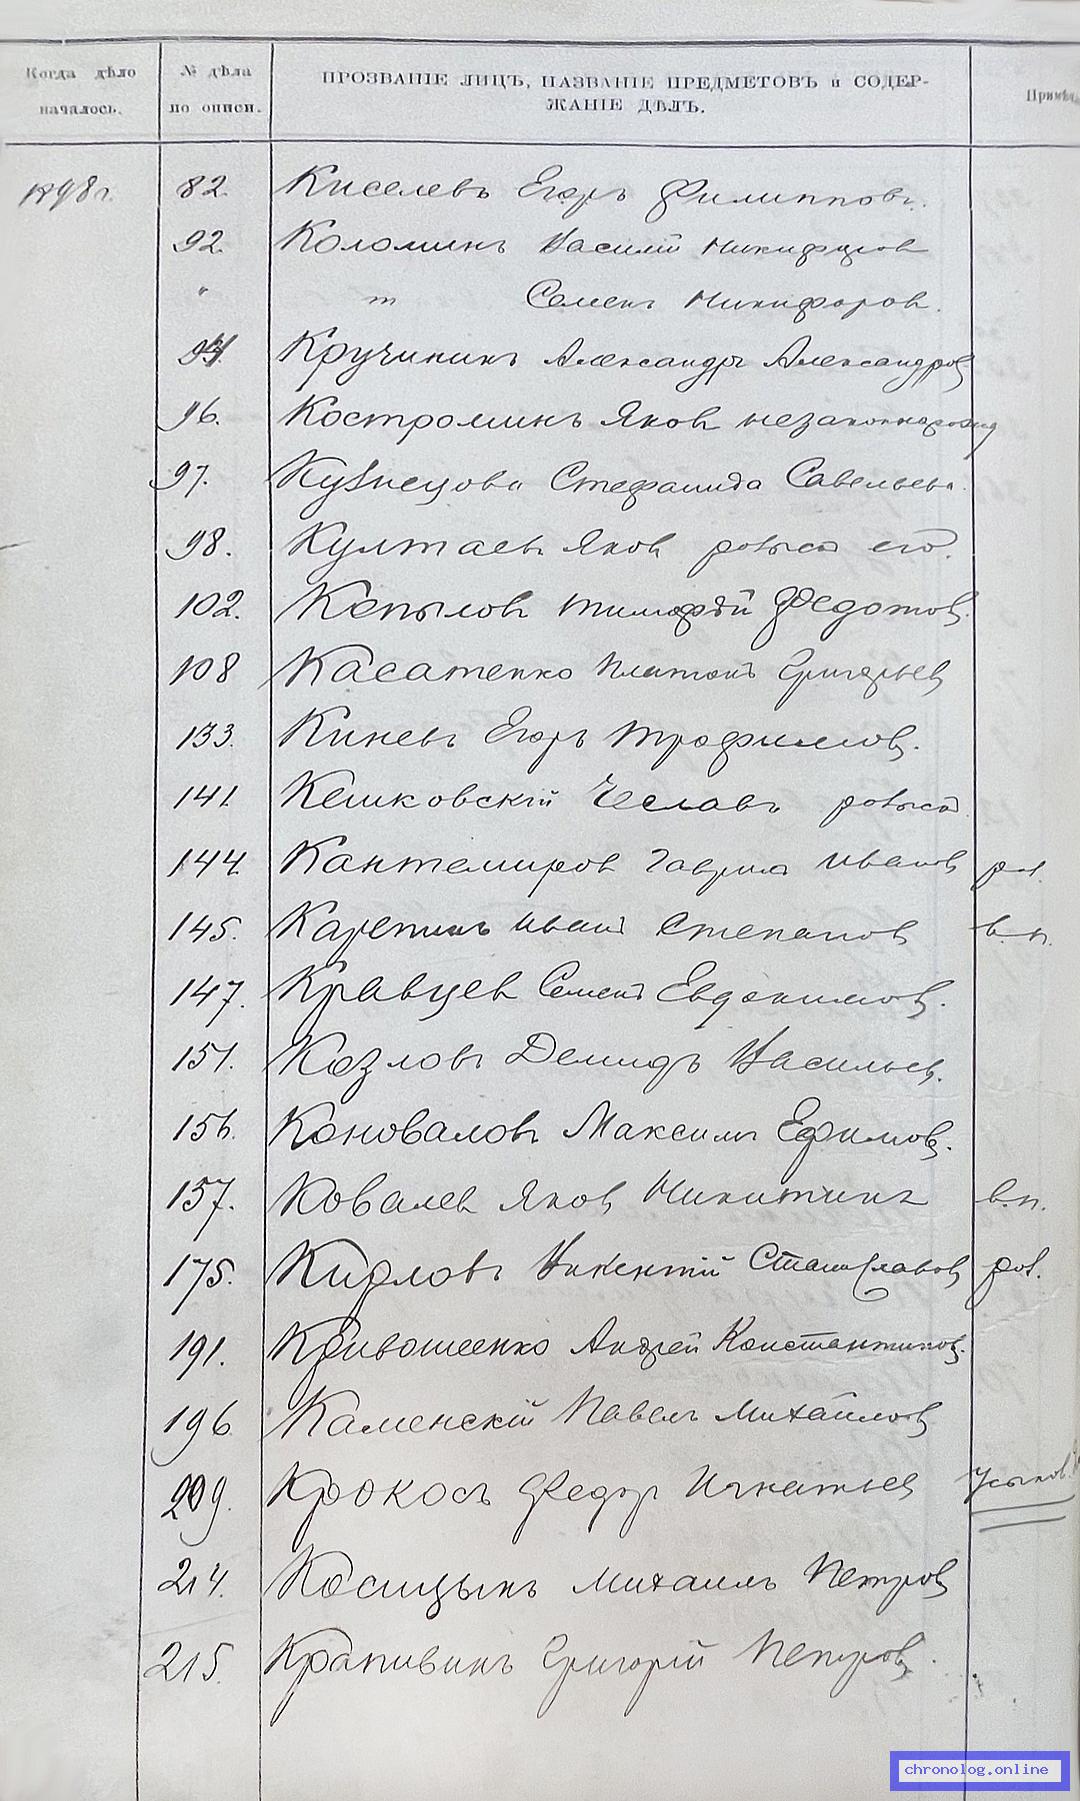 Когда дѣло
началось.
№ дѣла
по описи.
ПРОЗВАНІЕ ЛИЦЪ, НАЗВАНІЕ ПРЕДМЕТОВЪ и СОДЕР-
ЖАНІЕ ДѢЛЪ.
Примѣч
1898 г. 82. Киселевъ Егоръ Филиппов.
92. Коломинъ Василій Никифоров
" " Семенъ Никифоров.
Кручининъ Александръ Александров
96. Костроминъ Яков незаконнорожд
97. Кузнецова Степанида Савельева.
98. Култаевъ Яков розыск его.
102. Копылов Тимофѣй Федотов.
108 Касатенко Платонъ Григорьев
133. Киневъ Егоръ Трофимов.
141. Кешковскій Чеслав розыск
144. Кантемиров Гаврил Иванов роз.
145. Карепинъ Иван Степанов в.п.
147. Кравцев Семенъ Евдокимов.
151. Козловъ Демидъ Васильев.
156. Коноваловъ Максимъ Ефимов.
157. Ковалев Яков Никитинъ в.п.
175. Кирловъ Викентій Станиславов роз.
191. Кривошеенко Андрей Константинов.
196 Каменскій Павелъ Михайлов
209. Крокосъ Федор Игнатьев
214. Косицынъ Михаилъ Петров
215. Крапивинъ Григорій Петров.
chronolog.online